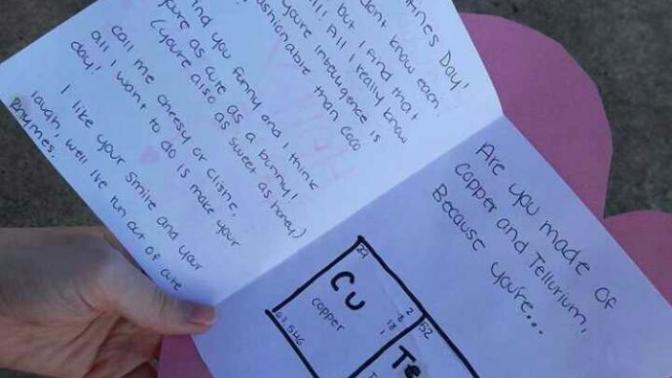 tines Day!
dont know each
but I find that
ll! All I really know
you're intelligence is
fashionable than Coco
find you funny and I think
you're as cute as a bunny!
(you're also as sweet as honey)
Call me cheesy or
all I want to do is make your
day!
I like your smile and your
laugh, well I've run out of cute
rhymes.
Are you made of
Copper and Tellurium,
Because you're...
29
Cu
copper
2
8
18
1
52
Te